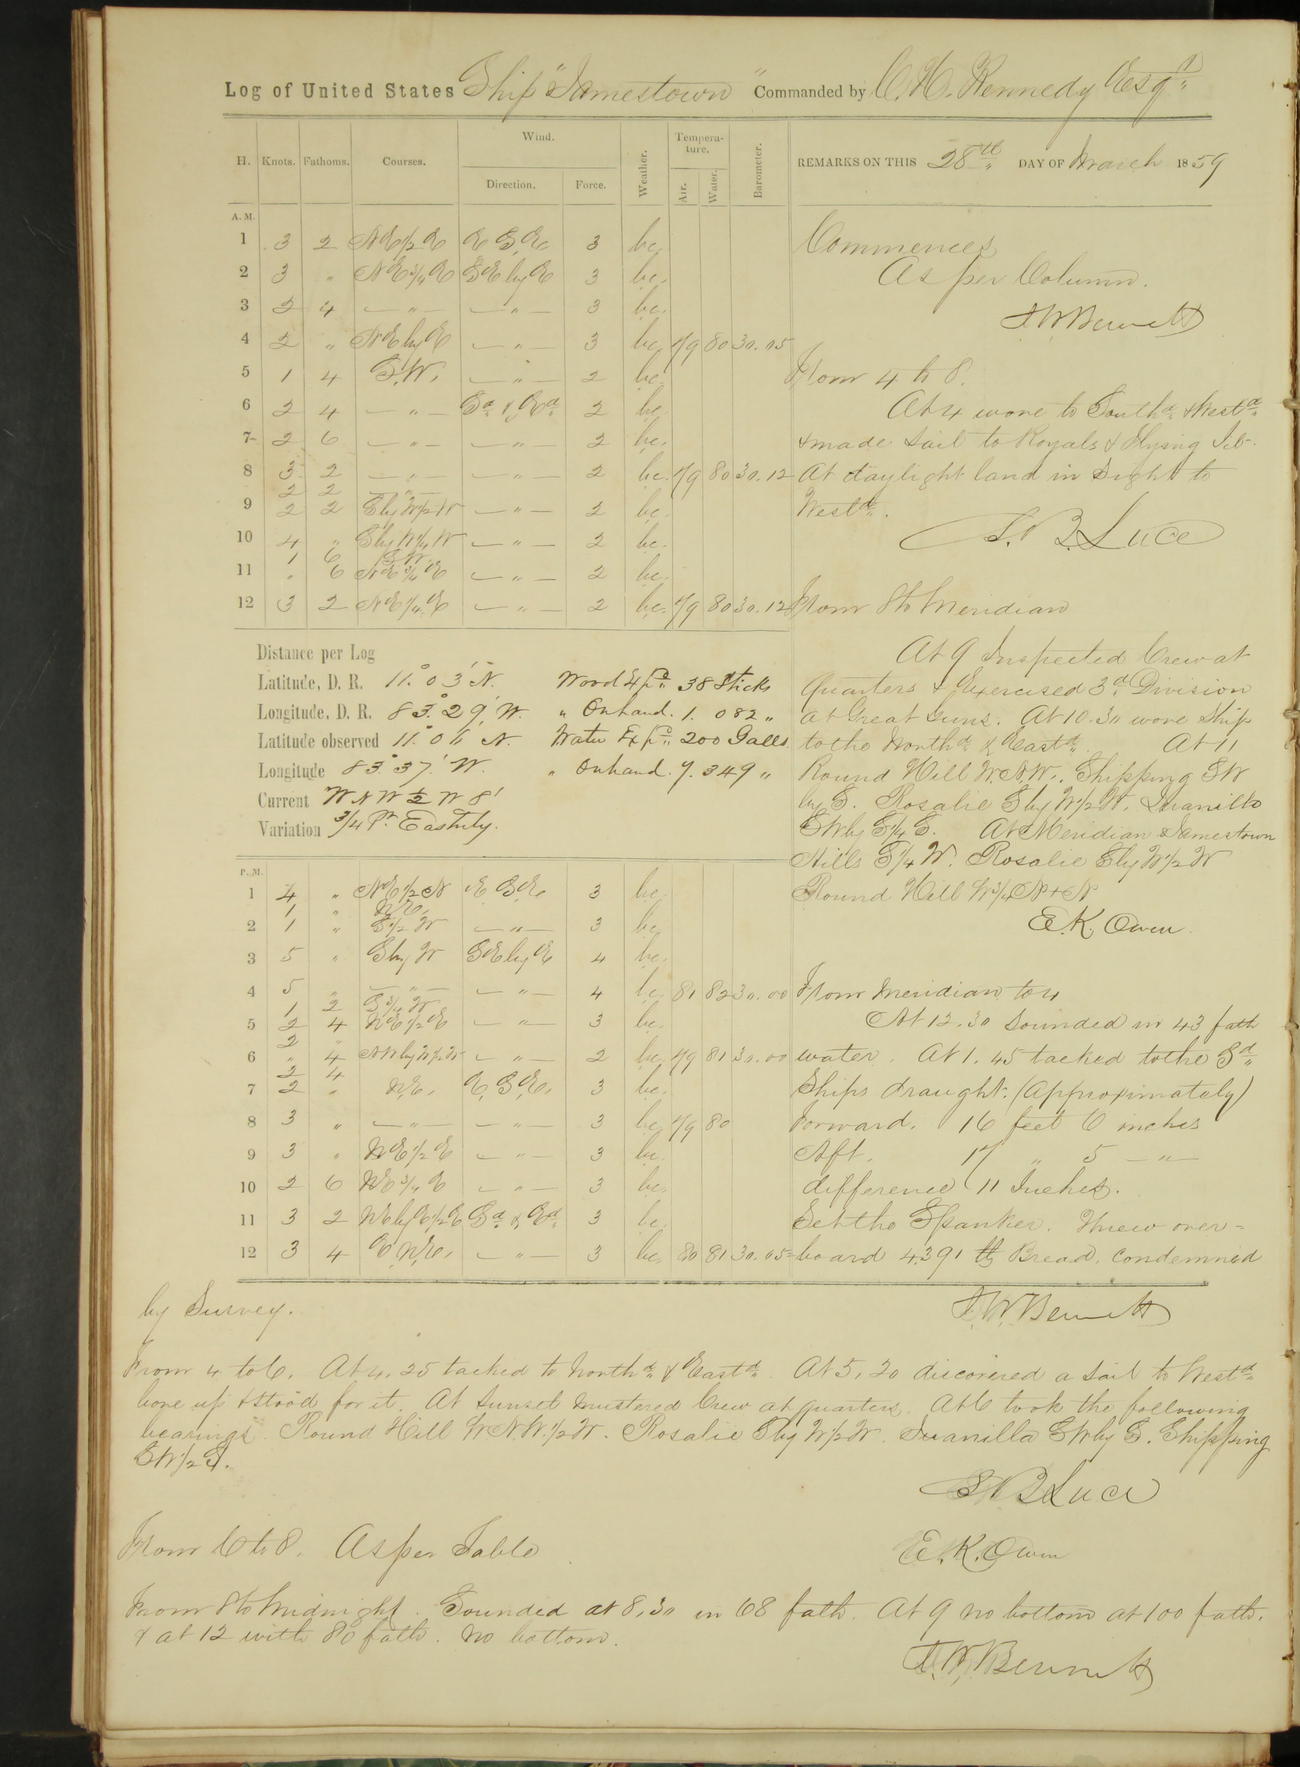 Log of United States Ship "Jamestown" Commanded by C. H. Kennedy Esqr.
H. Knots. Fathoms. Courses. Wind. Direction. Force. Weather. Tempera-ture. Air. Water. Barometer. REMARKS ON THIS 28th DAY OF March 1859
A.M.
1 3 2 NE 1/2 E E.S.E. 3 bc.
2 3 " NE 3/4 E SE by E 3 bc.
3 2 4 — " — — " — 3 bc.
4 2 " NE by E — " — 3 bc. 79 80 30.05
5 1 4 S.W. — " — 2 bc.
6 2 4 — " — Sd. & Ed. 2 bc.
7 2 6 — " — — " — 2 bc.
8 3 2 — " — — " — 2 bc. 79 80 30.12
2 2 — " —
9 2 2 S by W 1/2 W — " — 2 bc.
10 4 " S by W 1/4 W — " — 2 bc.
1 6 S.W.
11 " 6 NE 3/4 E — " — 2 bc.
12 3 2 NE 1/4 E — " — 2 bc. 79 80 30.12
Commences
As per Column.
From 4 to 8.
At 4 wore to Southd. & Westd.
& made sail to Royals & Flying Jib.
At daylight land in Sight to
Westd.
S. B. Luce
From 8 to Meridian
At 9 Inspected Crew at
Quarters & Exercised 3d. Division
at Great Guns. At 10.30 wore Ship
to the Northd. & Eastd. At 11
Round Hill W.N.W. Shipping SW
by S. Rosalie S by W 1/2 W. Juanilla
SW by S 1/4 S. At Meridian Jamestown
Hills S 1/4 W. Rosalie S by W 1/2 W
Round Hill W 3/4 N + N
E. K. Owen
Distance per Log
Latitude, D. R. 11° 03' N. Wood Expd. 38 Sticks
Longitude, D. R. 83° 29' W. " On hand. 1.082 "
Latitude observed 11° 0 N. Water Expd. 200 Galls.
Longitude 83° 37' W. " On hand. 7.349 "
Current W N W 1/2 W 8'
Variation 3/4 Pt. Easterly.
P.M.
1 4 " NE 1/2 N E.S.E. 3 bc.
1 " N.E.
2 1 " S 1/2 W — " — 3 bc.
3 5 " S by W SE by E 4 bc.
4 5 " — " — — " — 4 bc. 81 82 30.00
1 2 S 3/4 W
5 2 4 NE 1/2 E — " — 3 bc.
2 "
6 " 4 NW by W 1/2 W — " — 2 bc. 79 81 30.00
2 4
7 2 " N.E. E.S.E. 3 bc.
8 3 " — " — — " — 3 bc. 79 80
9 3 " NE 1/2 E — " — 3 bc.
10 2 6 NE 3/4 E — " — 3 bc.
11 3 2 NE by E 1/2 E Sd. & Ed. 3 bc.
12 3 4 E.N.E. — " — 3 bc. 80 81 30.05
From Meridian to 4
At 12.30 Sounded in 43 fath
water. At 1.45 tacked to the Sd.
Ships draught: (Approximately)
Forward. 16 feet 6 inches
Aft. 17 " 5 — " —
difference 11 Inches.
Set the Spanker. Threw over=
board 4391 lb Bread, condemned
by Survey.
From 4 to 6. At 4.25 tacked to Northd. & Eastd. At 5.20 discovered a Sail to Westd.
bore up & stood for it. At Sunset mustered Crew at quarters. At 6 took the following
bearings. Round Hill W.N.W. 1/2 W. Rosalie S by W 1/2 W. Juanilla SW by S. Shipping
SW 1/2 S.
S B Luce
From 6 to 8. As per Table
E. K. Owen
From 8 to Midnight. Sounded at 8.30 in 68 fath. At 9 no bottom at 100 fath.
& at 12 with 80 fath. no bottom.